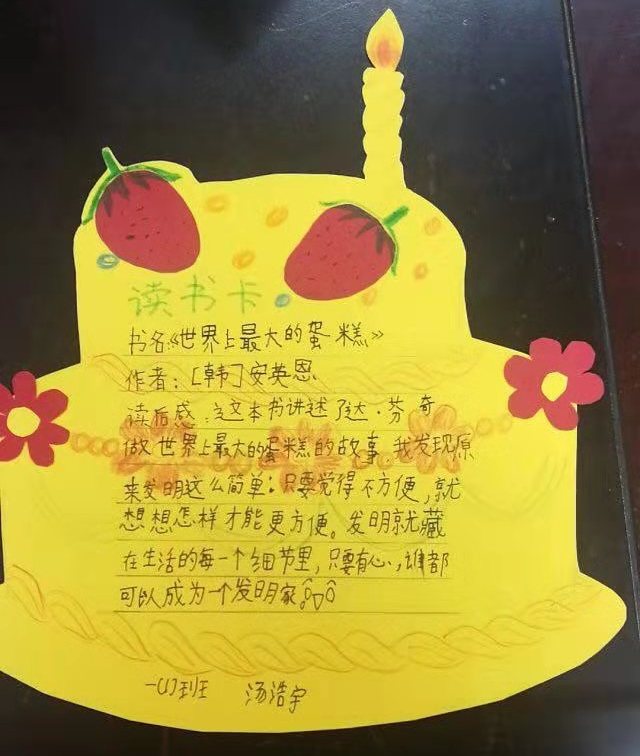 读书卡
书名:《世界上最大的蛋糕》
作者:[韩]安英恩
读后感:这本书讲述了达·芬奇
做世界上最大的蛋糕的故事。我发现原
来发明这么简单:只要觉得不方便,就
想想怎样才能更方便。发明就藏
在生活的每一个细节里,只要有心,谁都
可以成为一个发明家。
一(1)班 汤浩宇